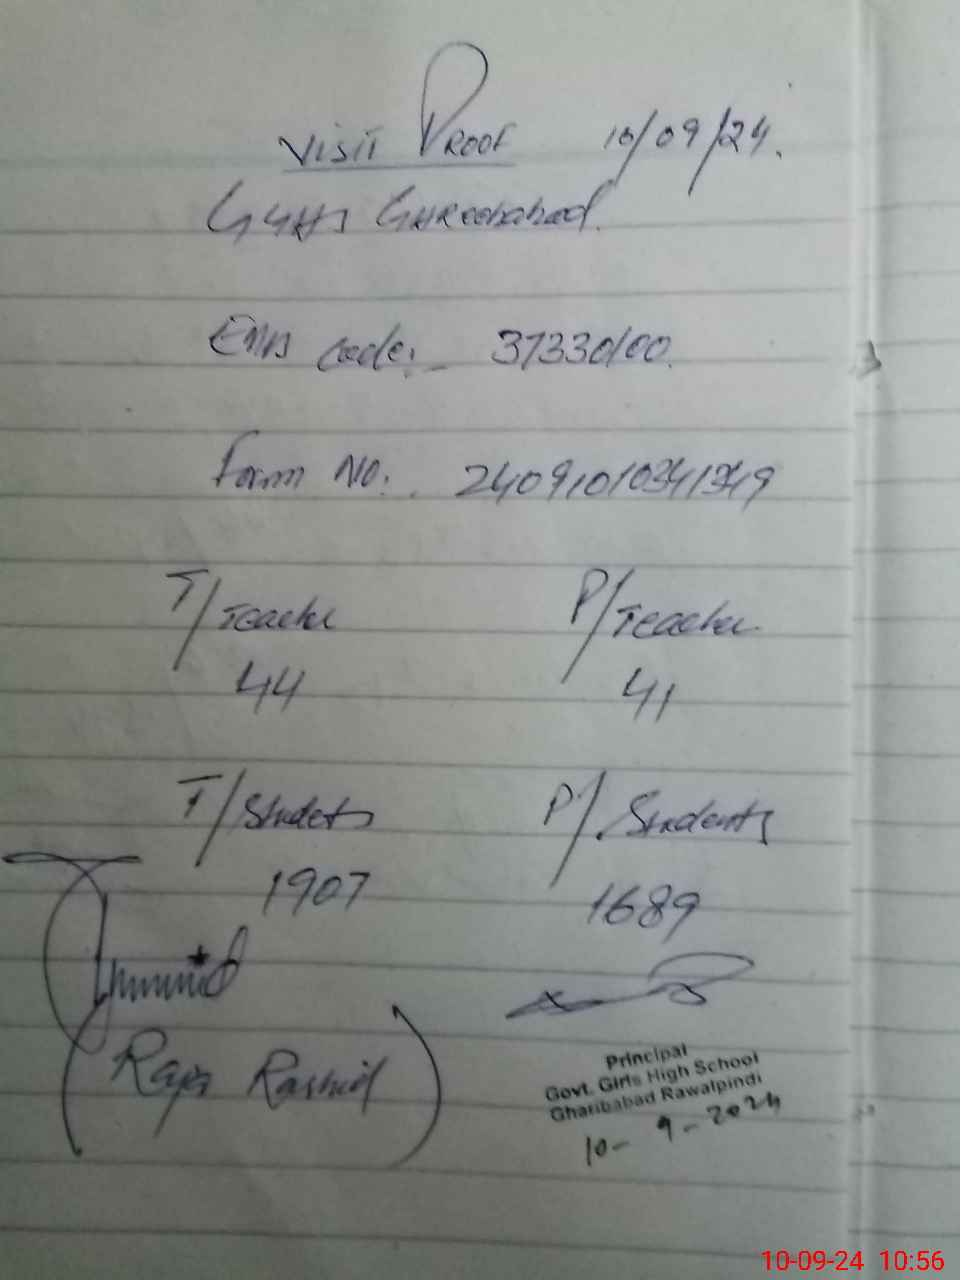 Visit Proof 10/09/24.
GGHS Ghareebabad.
EMIS Code:- 37330100.
Form No:. 24091010341349
T/Teacher P/Teacher
44 41
T/Students P/Students
1907 1689
(Raja Rashid)
Principal
Govt. Girls High School
Gharibabad Rawalpindi
10-9-2024
10-09-24 10:56